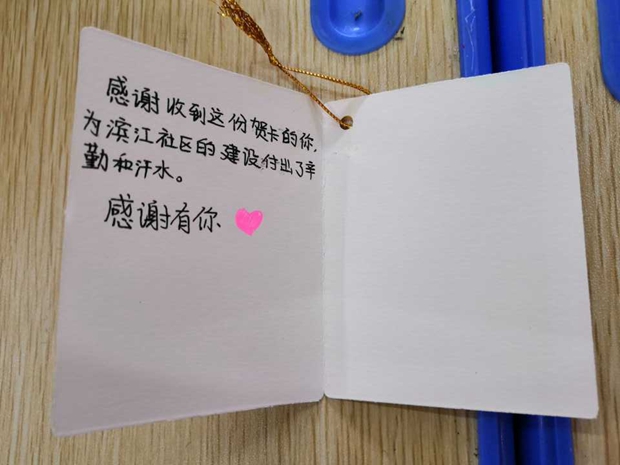 感谢收到这份贺卡的你,
为滨江社区的建设付出了辛
勤和汗水。
感谢有你